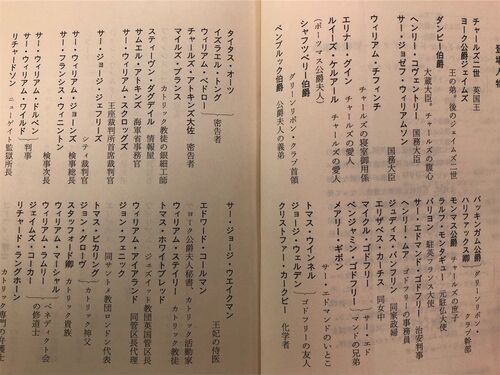 登場人物
チャールズ二世 英国王
ヨーク公爵ジェイムズ 王の弟。後のジェイムズ二世
ダンビー伯爵 大蔵大臣。チャールズの腹心
ヘンリー・コヴェントリー 国務大臣
サー・ジョゼフ・ウィリアムソン 国務大臣
ウィリアム・チフィンチ チャールズの寝室御用係
エリナー・グイン チャールズの愛人
ルイーズ・ケルアール チャールズの愛人
(ポーツマス公爵夫人)
シャフツベリー伯爵 グリーンリボン・クラブ首領
ペンブルック伯爵 公爵夫人の義弟
バッキンガム公爵 グリーンリボン・
ハリファックス卿 クラブ幹部
モンマス公爵 チャールズの庶子
ラルフ・モンタギュー 元駐仏大使
バリヨン 駐英フランス大使
サー・エドマンド・ゴドフリー 治安判事
ヘンリー・ムーア ゴドフリーの事務員
ジュディス・パンフリン 同家政婦
エリザベス・カーチス 同女中
マイクル・ゴドフリー サー・エド
ベンジャミン・ゴドフリー マンドの兄弟
メアリー・ギボン サー・エドマンドのいとこ
トマス・ウィンネル ゴドフリーの友人
サー・ジョージ・ウェルドン
クリストファー・カークビー 化学者
タイタス・オーツ
イズラエル・トング
ウィリアム・ベドロー 密告者
チャールズ・アトキンズ大佐 密告者
マイルズ・プランス
カトリック教徒の銀細工師
スティーヴン・ダグデイル 情報屋
サムエル・アトキンズ 海軍省事務官
サー・ウィリアム・スクロッグズ
王座裁判所首席裁判官
サー・ジョージ・ジェフリーズ
シティ裁判官
サー・ウィリアム・ジョーンズ 検事総長
サー・フランシス・ウィニントン
検事次長
サー・ウィリアム・ドルベン 判事
サー・ウィリアム・ワイルド
リチャードソン ニューゲイト監獄所長
サー・ジョージ・ウェイクマン
王妃の侍医
エドワード・コールマン
ヨーク公爵夫人秘書。カトリック活動家
ウィリアム・ステイリー カトリック教徒
トマス・ホワイトブレッド
ジェズイット教団英国管区長
ウィリアム・アイアランド 同管区長代理
ジョン・フェニック
同サントメ教団ロンドン代表
トマス・ピカリング カトリック神父
ジョン・グローヴ
スタッフォード卿 カトリック貴族
ウィリアム・マーシャル
ウィリアム・ラムリー ベネディクト会
ジェイムズ・コーカー の修道士
リチャード・ラングホーン
カトリック専門の弁護士